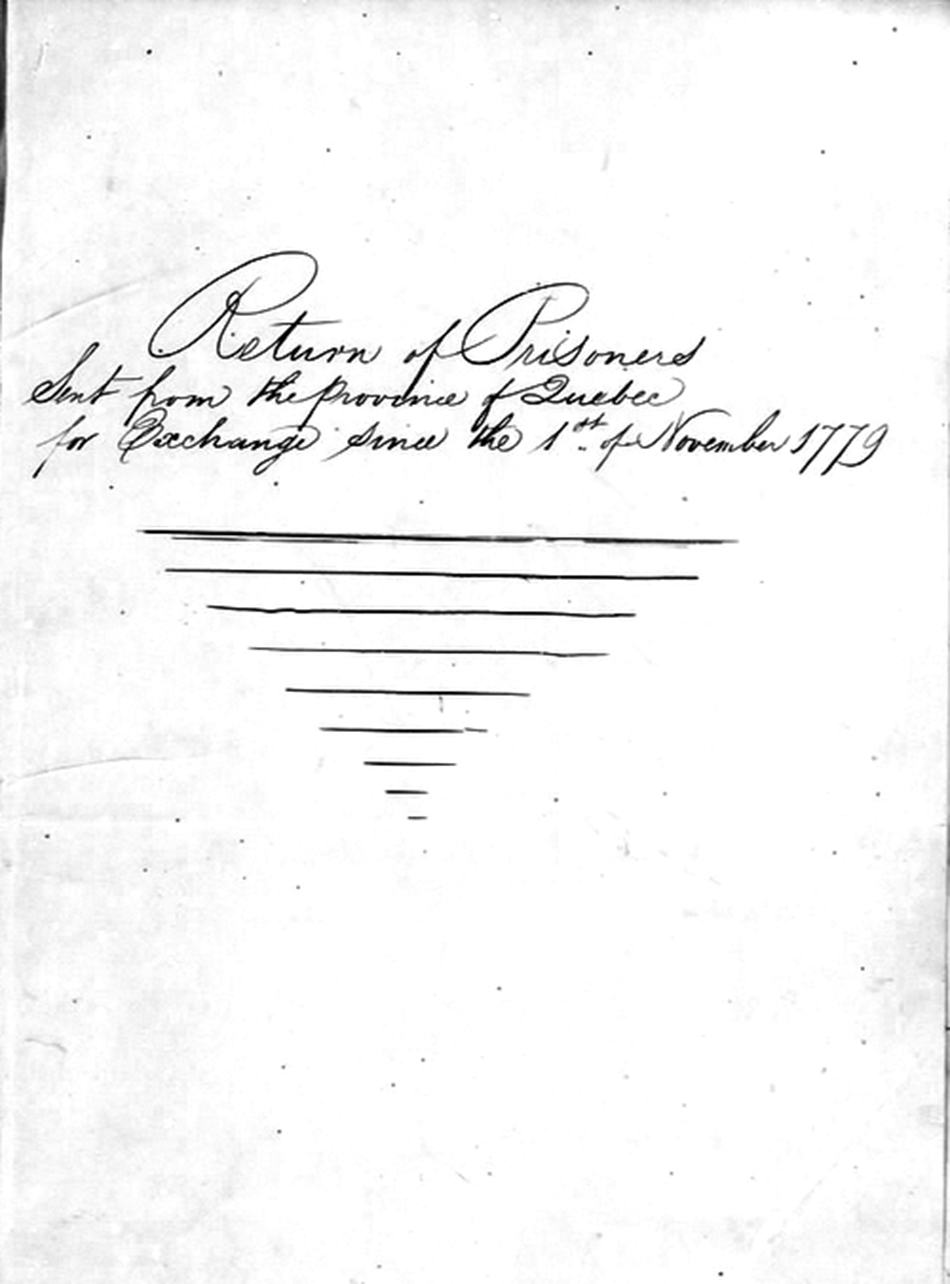 Return of Prisoners
Sent from the Province of Quebec
for Exchange since the 1st. of November 1779